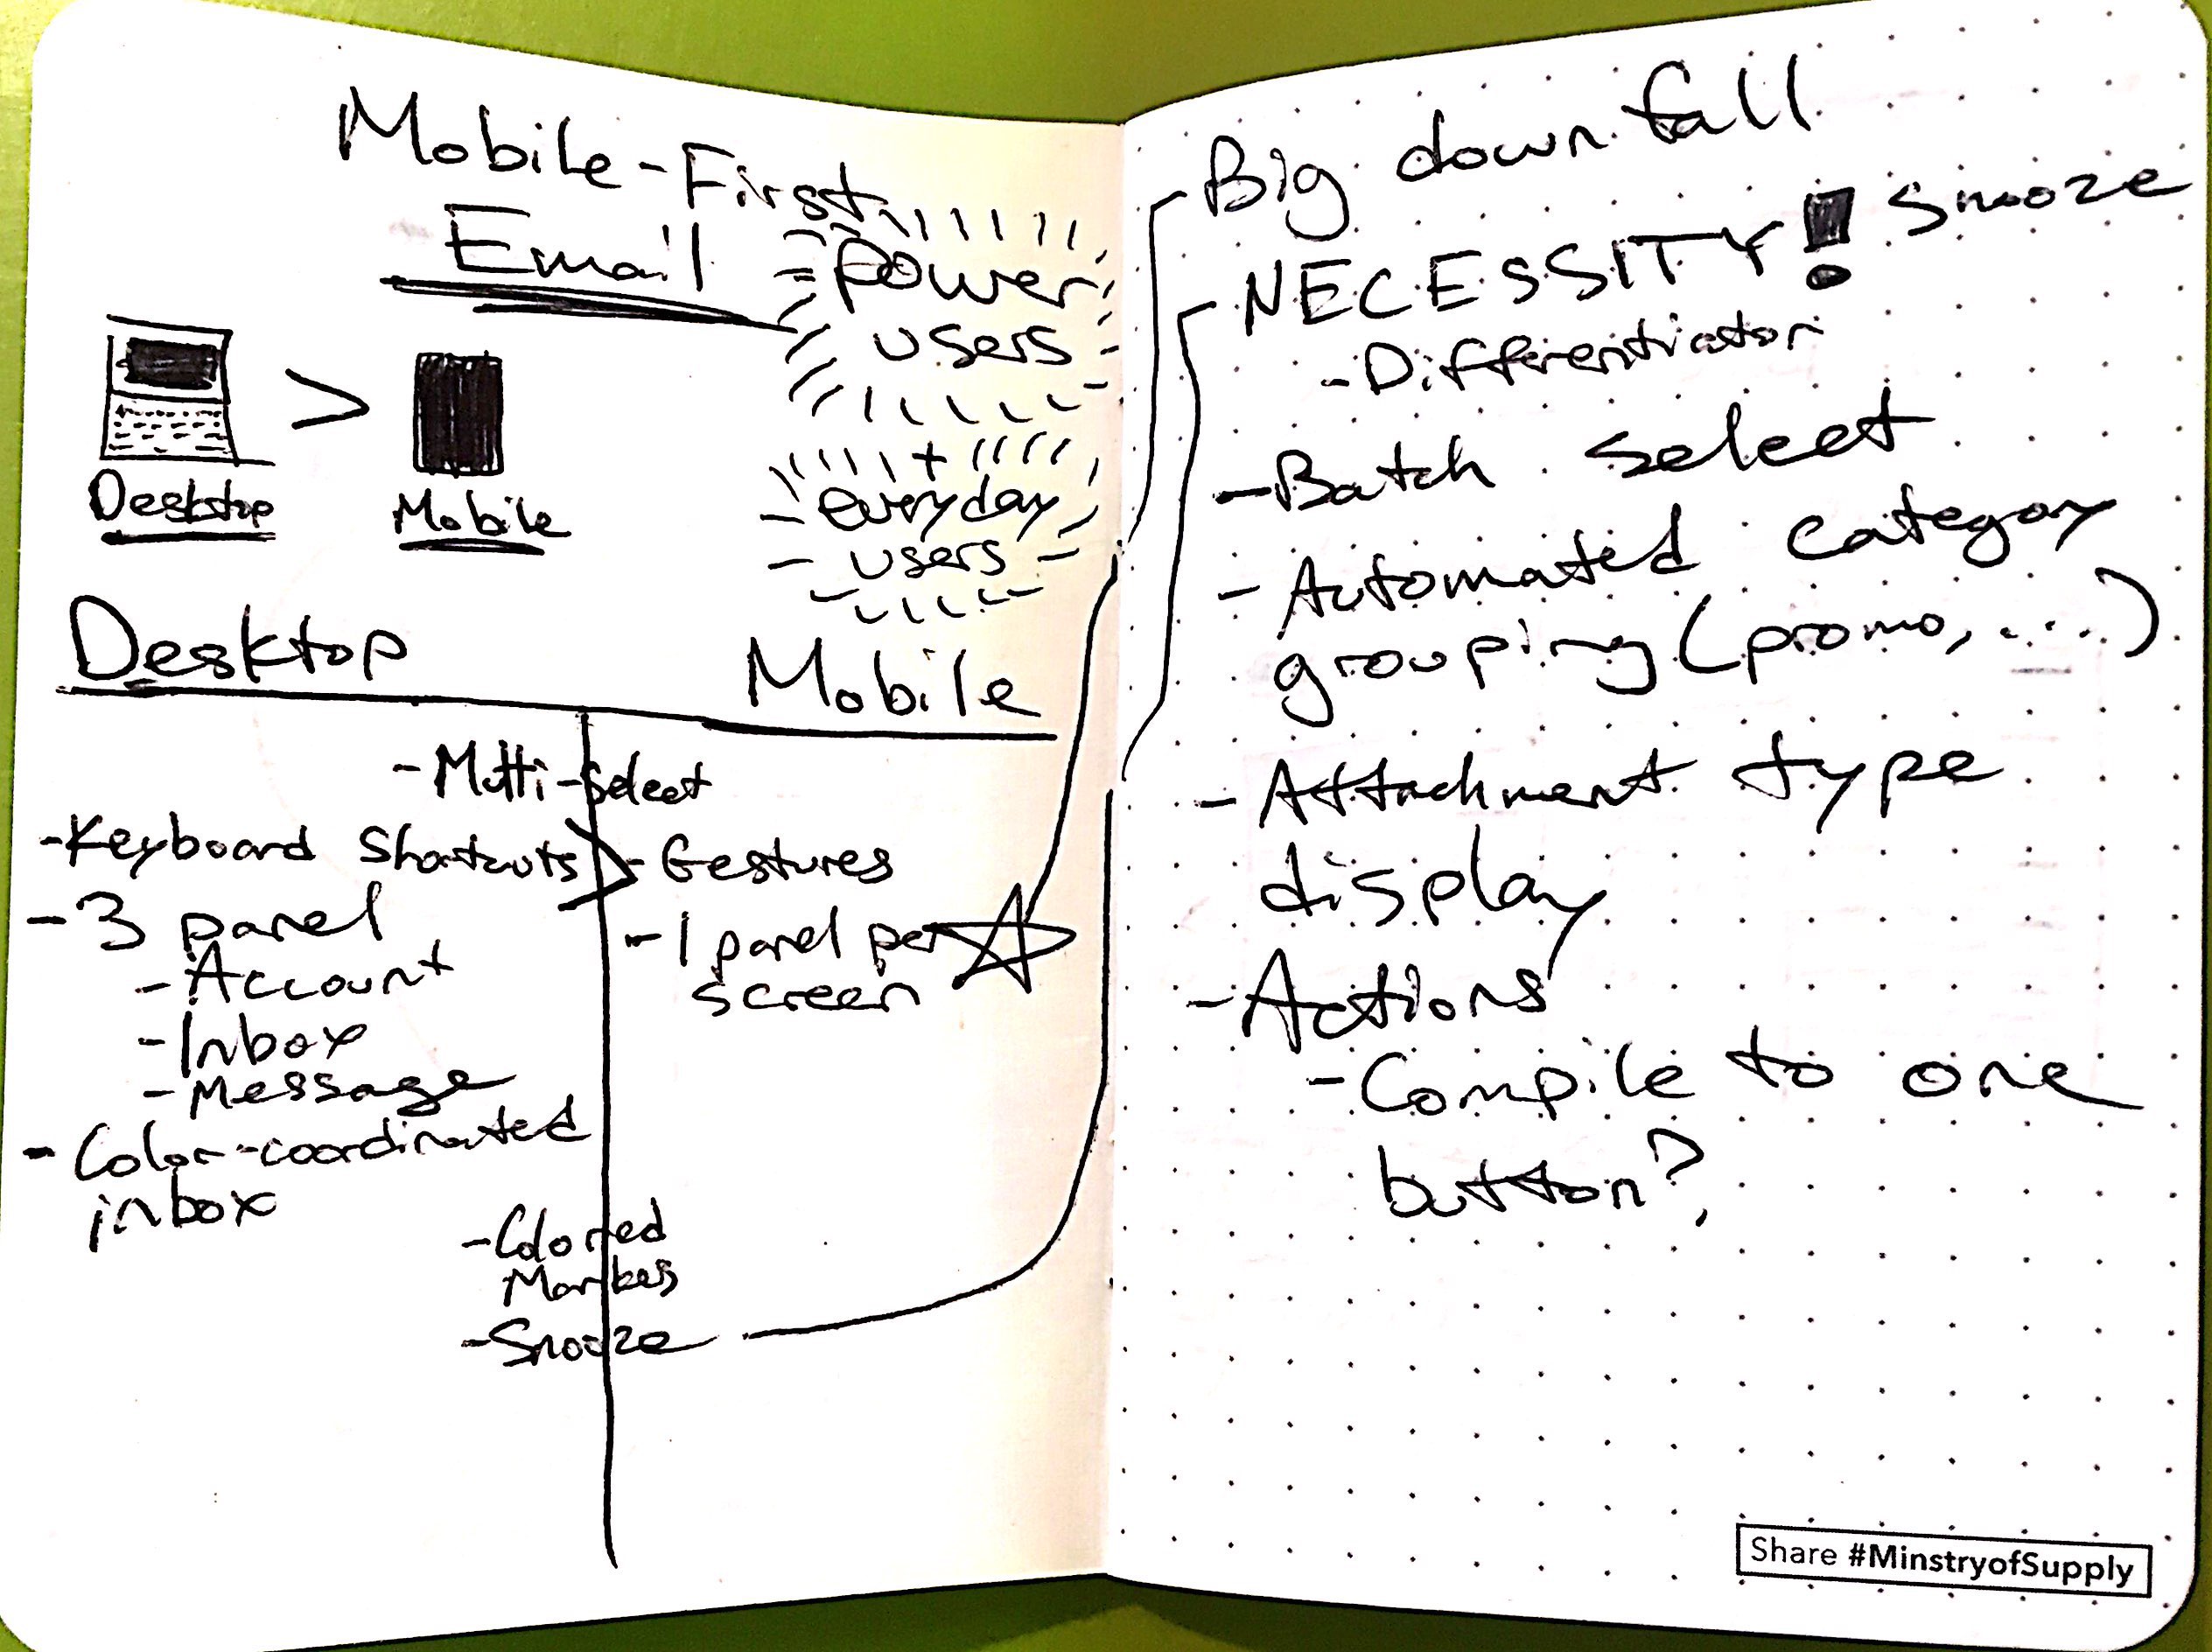 Mobile-First
Email
power
users
+
everyday
users
>
Desktop
Mobile
Desktop
Mobile
- Multi-select
- Keyboard Shortcuts > - Gestures
- 3 panel
- Account
- Inbox
- Message
- 1 panel per
screen
- Color-coordinated
inbox
- Colored
Markes
- Snooze
Big downfall
NECESSITY! Snooze
- Differentiator
- Batch select
- Automated category
grouping (promo, ....)
- Attachment type
display
- Actions
- Compile to one
button?
Share #MinstryofSupply